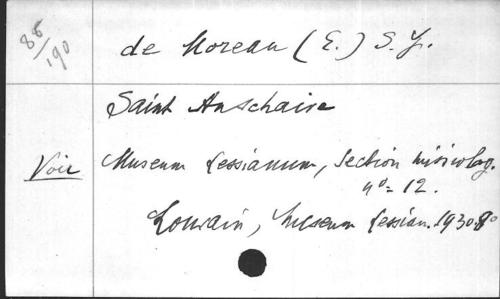 86/190
de Moreau (E.) S.J.
Saint Anschaire
Voir Museum Lessianum, Section missiolog.
n° = 12.
Louvain, Museum Lessian. 1930. 8°